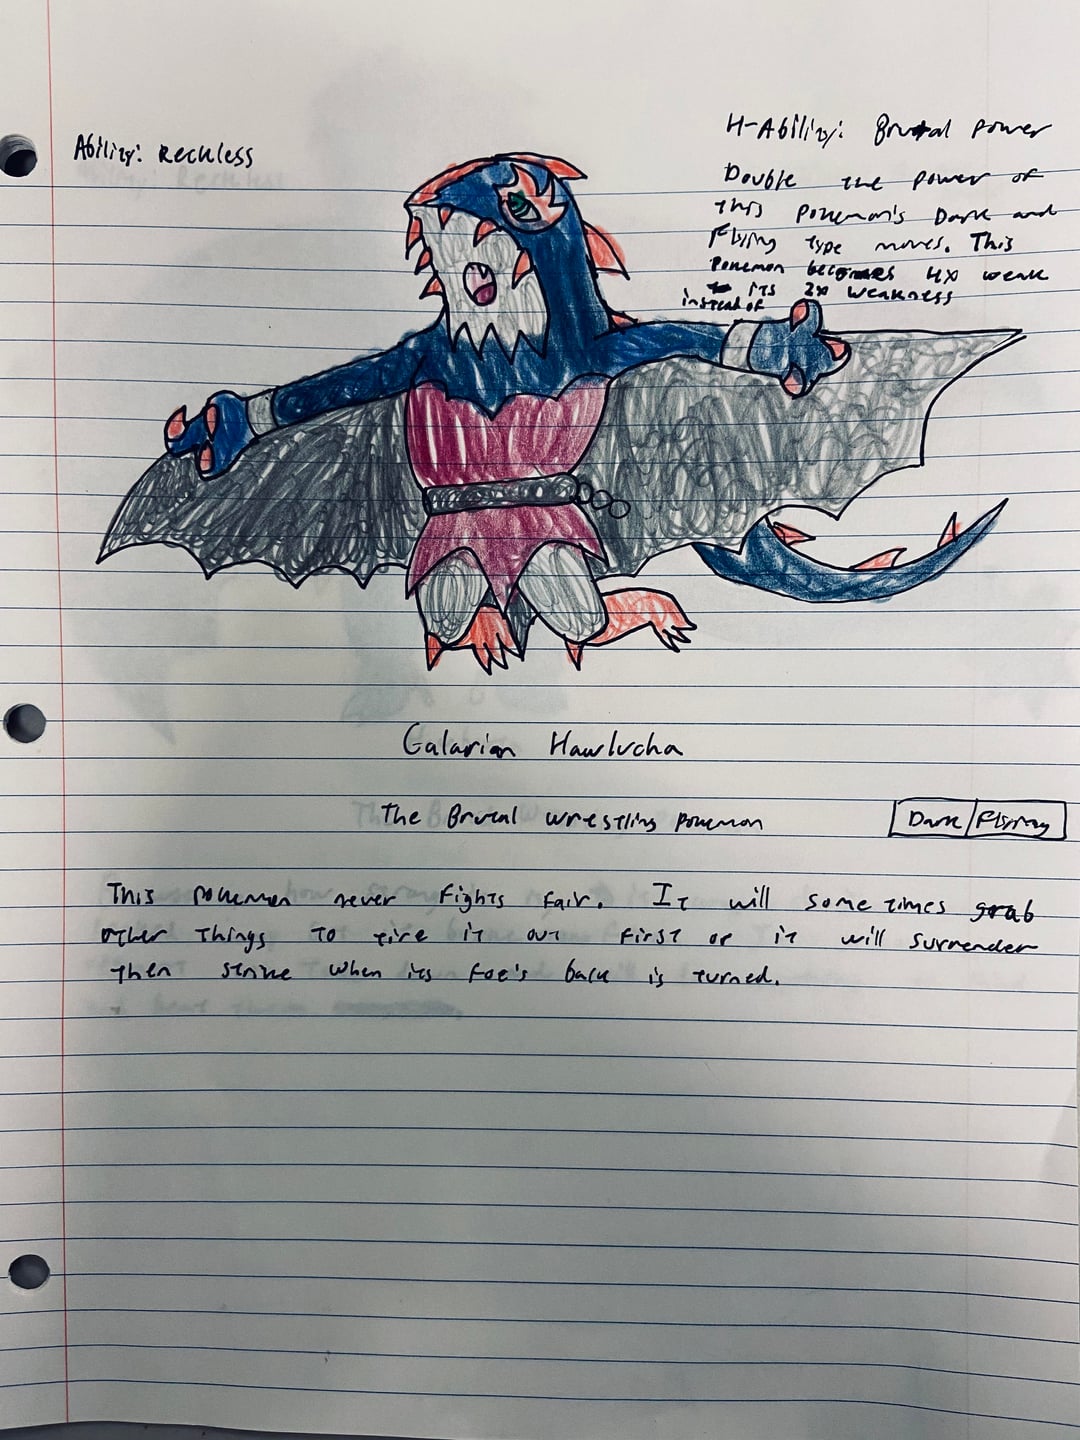 Ability: Reckless
H-Ability: Brutal Power
Double the power of
this Pokemon's Dark and
Flying type moves. This
Pokemon becomes 4x weak
to its 2x weakness
instead of
Galarian Hawlucha
The Brutal wrestling pokemon
Dark/Flying
This pokemon never fights fair. It will sometimes grab
other things to tire it out first or it will surrender
then strike when its foe's back is turned.